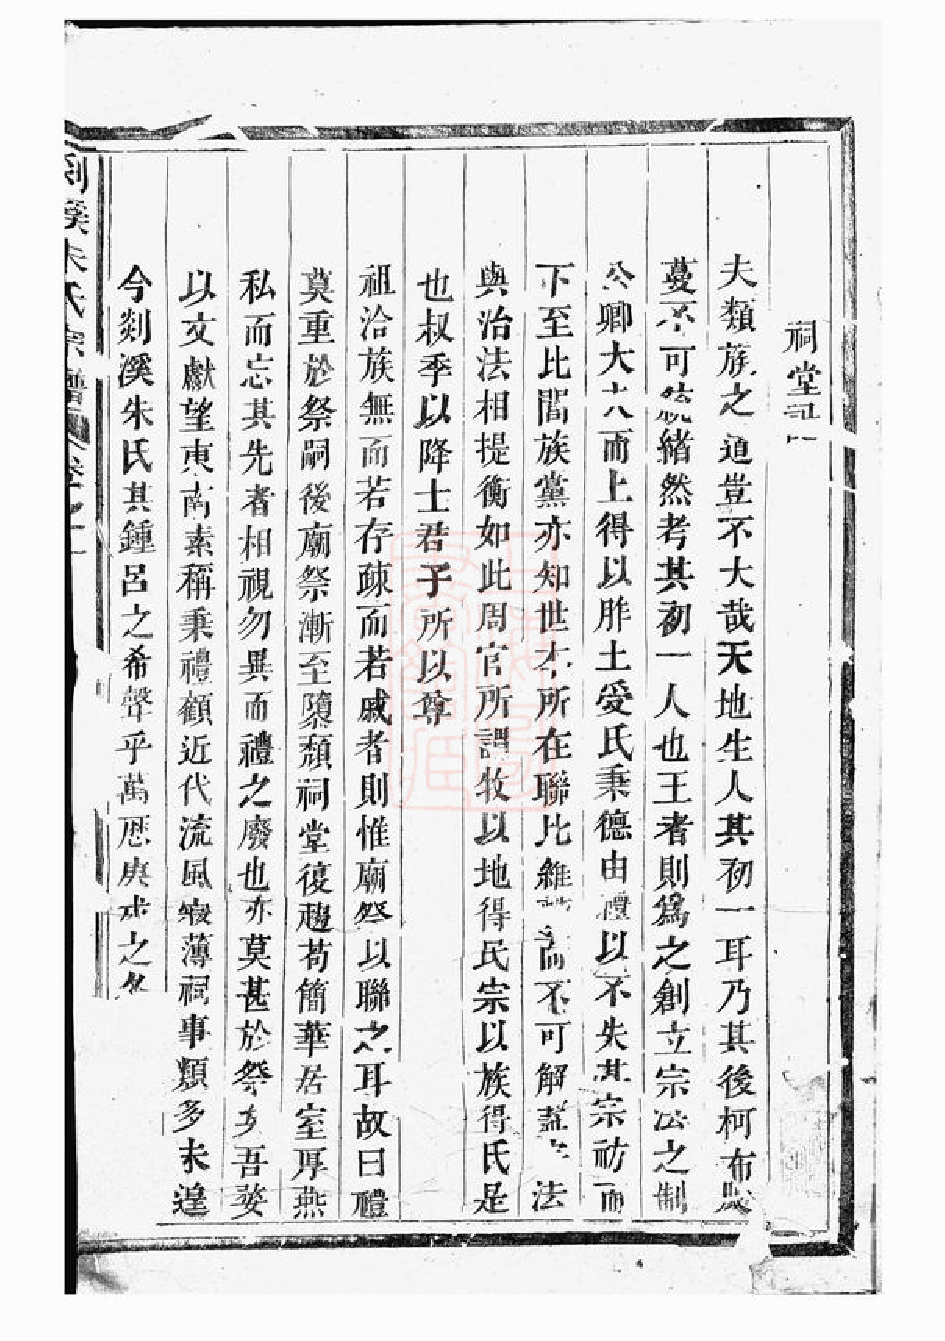 祠堂記
夫類族之道豈不大哉天地生人其初一耳乃其後柯布
蔓不可統緒然考其初一人也王者則為之創立宗公之制
公卿大夫而上得以胙土受氏秉德由禮以不失其宗祊而
下至比閭族黨亦知世次所在聯比維而不可解法
與治法相提衡如此周官所謂牧以地得民宗以族得氏是
也叔季以降士君子所以尊
祖洽族無而若存疎而若戚者則惟廟祭以聯之耳故曰禮
莫重於祭嗣後廟祭漸至隳頹祠堂復趨苟簡華居室厚燕
私而忘其先者相視勿異而禮之廢也亦莫甚於祭矣吾婺
以文獻望東南素稱秉禮顧近代流風寖薄祠事類多未遑
今剡溪朱氏其鍾呂之希聲乎萬曆庚戌之冬
剡溪朱氏宗譜 卷之一